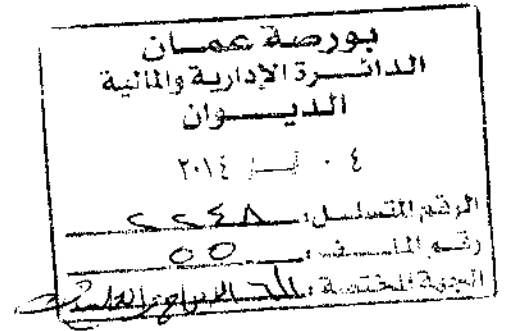 بورصة عمان
الدائرة الإدارية والمالية
الديوان
٠٤ ٢٠١٤
الرقم المتسلسل: ٢٢٤٨
رقم الملف: ٥٥
الجهة المختصة: